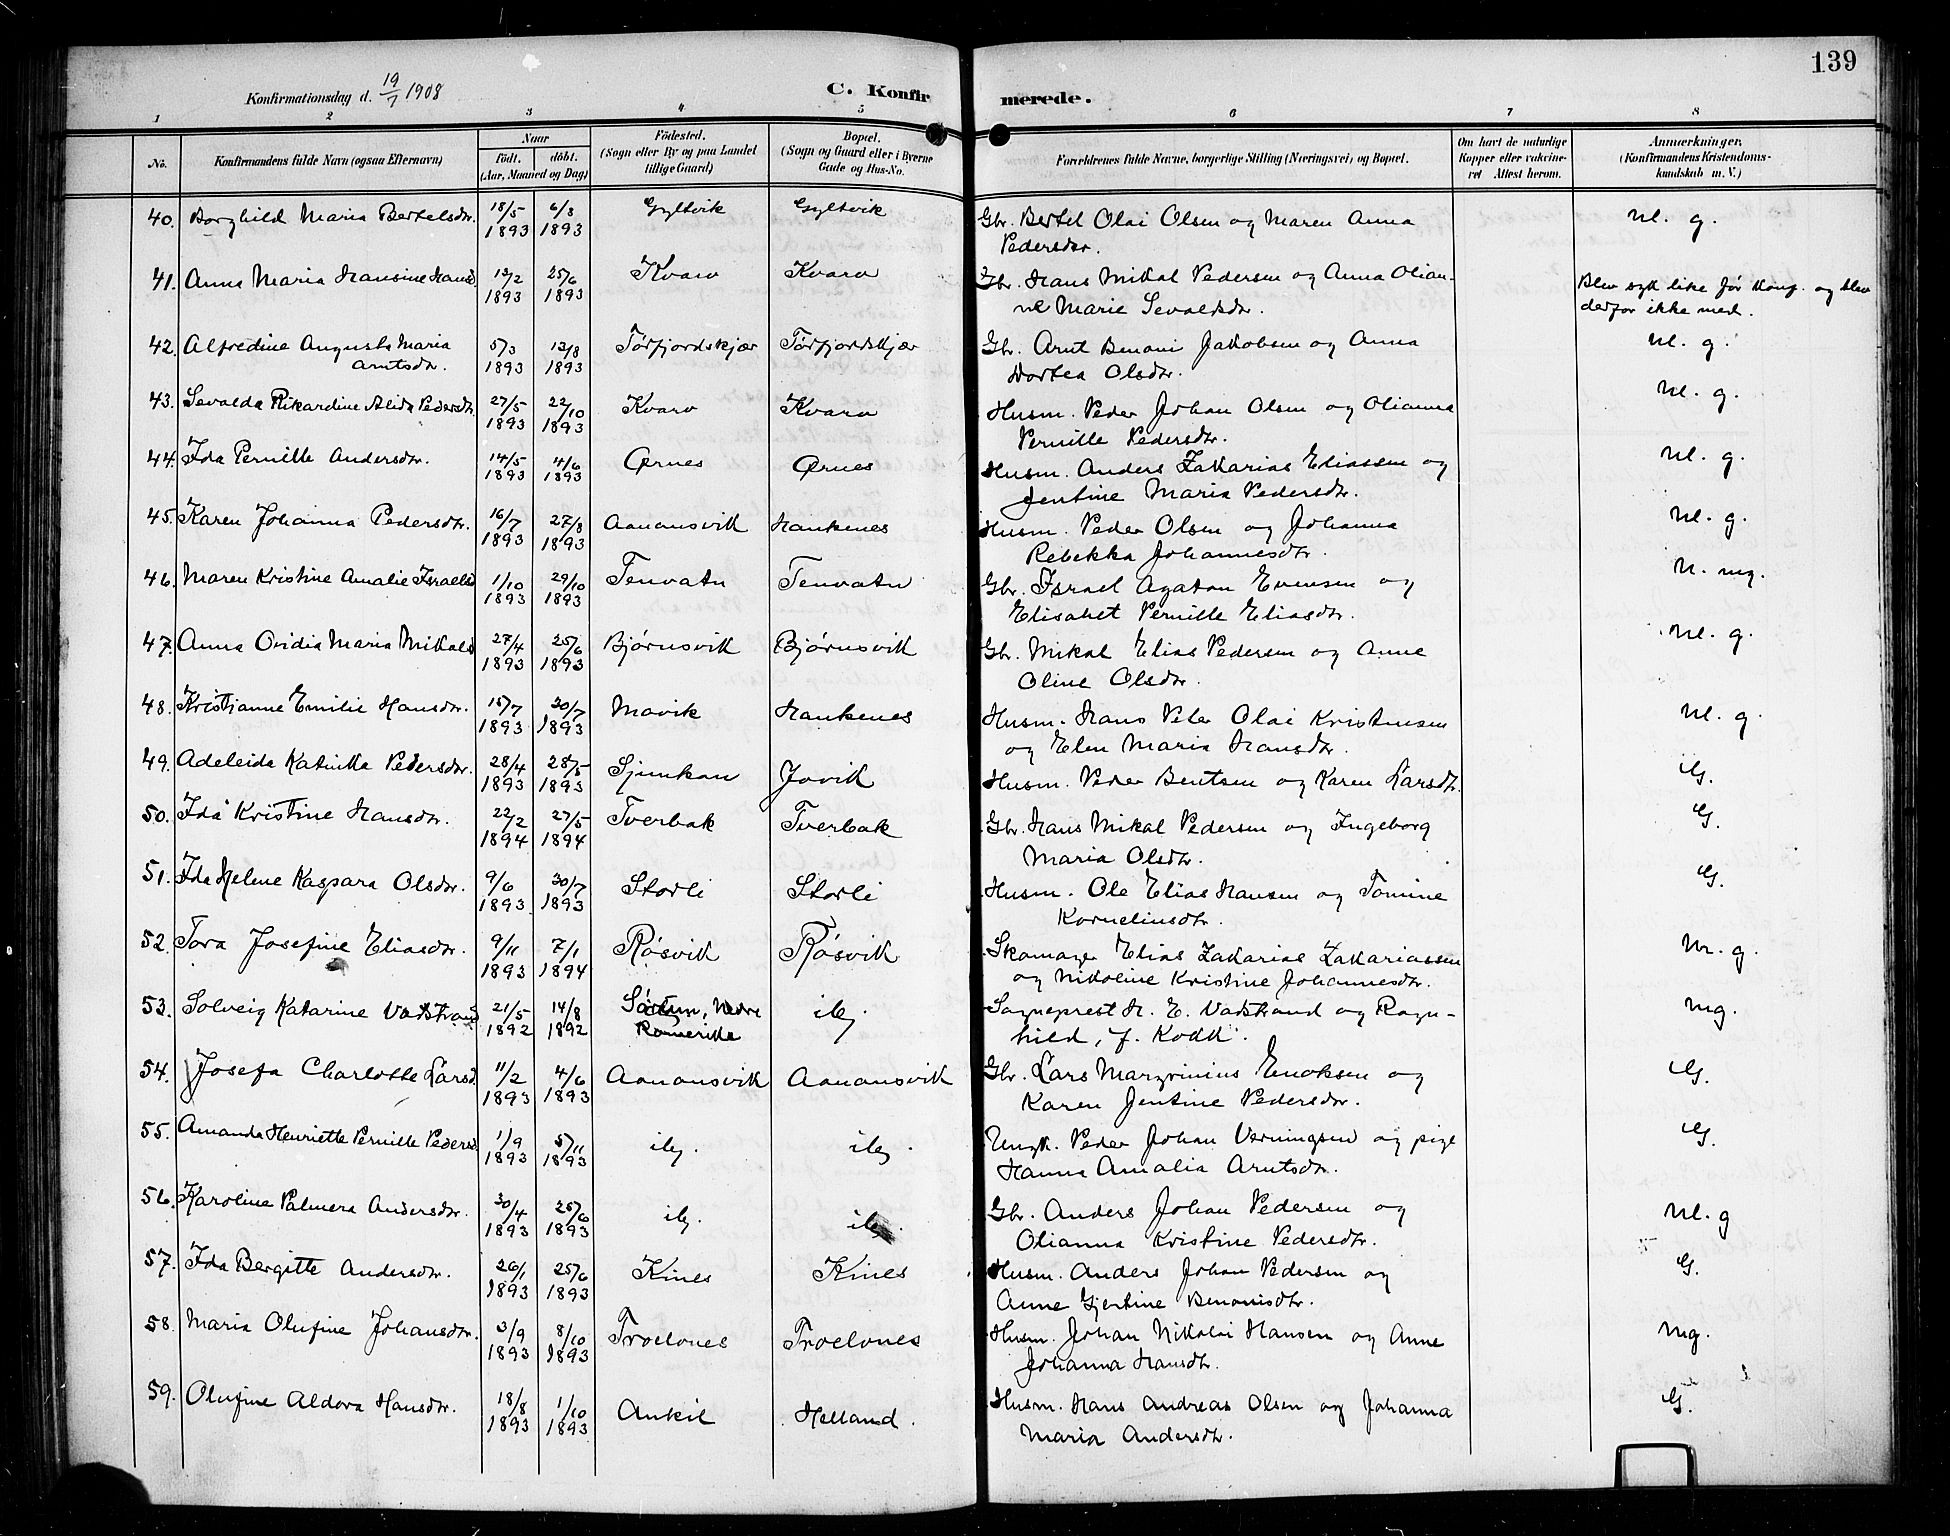 139
Konfirmationsdag d. 19/7 1908
C. Konfirmerede.
1 2 3 4 5 6 7 8
No. Konfirmandens fulde Navn (ogsaa Efternavn) Naar født. døbt. (Aar, Maaned og Dag) Födested. (Sogn eller By og paa Landet tillige Gaard) Bopæl. (Sogn og Gaard eller i Byerne Gade og Hus-No. Forældrenes fulde Navne, borgerlige Stilling (Næringsvei) og Bopæl. Om havt de naturlige Kopper eller vakcineret Attest herom. Anmærkninger. (Konfirmandens Kristendomskundskab m. V.)
40. Borghild Maria Bertelsdtr. 18/5 1893 6/8 1893 Gyltvik Gyltvik Gbr. Bertel Olai Olsen og Maren Anna
Pedersdtr. Ml. g.
41. Anna Maria Hansine Hansd 12/2 1893 25/6 1893 Kvarv Kvarv Gbr. Hans Mikal Pedersen og Anna Olian-
ne Marie Sevaldsdtr. Blev syk like før konf. og blev
derfor ikke med.
42. Alfredine Augusta Maria
Arntsdtr. 5/3 1893 13/8 1893 Tørfjordskjær Tørfjordskjær Gbr. Arnt Benoni Jakobsen og Anna
Dortea Olsdtr. Ml. g.
43. Sevalda Rikardine Alida Pedersdtr. 27/5 1893 22/10 1893 Kvarv Kvarv Husm. Peder Johan Olsen og Olianna
Pernille Pedersdtr. Ml. g.
44. Ida Pernille Andersdtr. 14/5 1893 4/6 1893 Ørnes Ørnes Husm. Anders Zakarias Eliassen og
Jentine Maria Pedersdtr. Ml. g.
45. Karen Johanna Pedersdtr. 16/7 1893 27/8 1893 Aanansvik Haukenes Husm. Peder Olsen og Johanna
Rebekka Johannesdtr. Ml. g.
46. Maren Kristine Amalie Israelsd 1/10 1893 29/10 1893 Tenvatn Tenvatn Gbr. Israel Agaton Evensen og
Elisabet Pernille Eliasdtr. M. mg.
47. Anna Ovidia Maria Mikalsd 27/4 1893 25/6 1893 Bjørnsvik Bjørnsvik Gbr. Mikal Elias Pedersen og Anne
Oline Olsdtr. Ml. g.
48. Kristianne Emilie Hansdtr. 15/7 1893 30/7 1893 Mavik Haukenes Husm. Hans Peder Olai Kristensen
og Elen Maria Hansdtr. Ml. g.
49. Adeleida Katinka Pedersdtr. 28/4 1893 28/5 1893 Sjunkan Jovik Husm. Peder Bentsen og Karen Larsdtr. G.
50. Ida Kristine Hansdtr. 22/2 1894 27/5 1894 Tverbak Tverbak Gbr. Hans Mikal Pedersen og Ingeborg
Maria Olsdtr. G.
51. Ida Helene Kaspara Olsdtr. 9/6 1893 30/7 1893 Storli Storli Husm. Ole Elias Hansen og Tomine
Korneliusdtr. G.
52. Tora Josefine Eliasdtr. 9/11 1893 7/1 1894 Røsvik Røsvik Skomager Elias Zakarias Zakariassen
og Nikoline Kristine Johannesdtr. M. g.
53. Solveig Katarine Vadstrand 21/5 1892 14/8 1892 Nedre
Romerike ib. Sogneprest H. E. Vadstrand og Ragn-
hild, f. Kokk. mg.
54. Josefa Charlotte Larsd. 11/2 1893 4/6 1893 Aanansvik Aanansvik Gbr. Lars Enoksen og
Karen Jentine Pedersdtr. G.
55. Amanda Henriette Pernille Pedersd 1/9 1893 5/11 1893 ib. ib. Ungk. Peder Johan Verningsen og pige
Hanna Amalia Arntsdtr. G.
56. Karoline Palmera Andersdtr. 30/4 1893 25/6 1893 ib. ib. Gbr. Anders Johan Pedersen og
Olianna Kristine Pedersdtr. Ml. g
57. Ida Bergitte Andersdtr. 26/1 1893 25/6 1893 Kines Kines Husm. Anders Johan Pedersen og
Anne Gjertine Benonisdtr. G.
58. Maria Olufine Johansdtr. 3/9 1893 8/10 1893 Troelvnes Troelvnes Husm. Johan Nikolai Hansen og Anne
Johanna Hansdtr. mg.
59. Olufine Aldora Hansdtr. 18/8 1893 1/10 1893 Ankil Helland. Husm. Hans Andreas Olsen og Johanna
Maria Andersdtr. G.